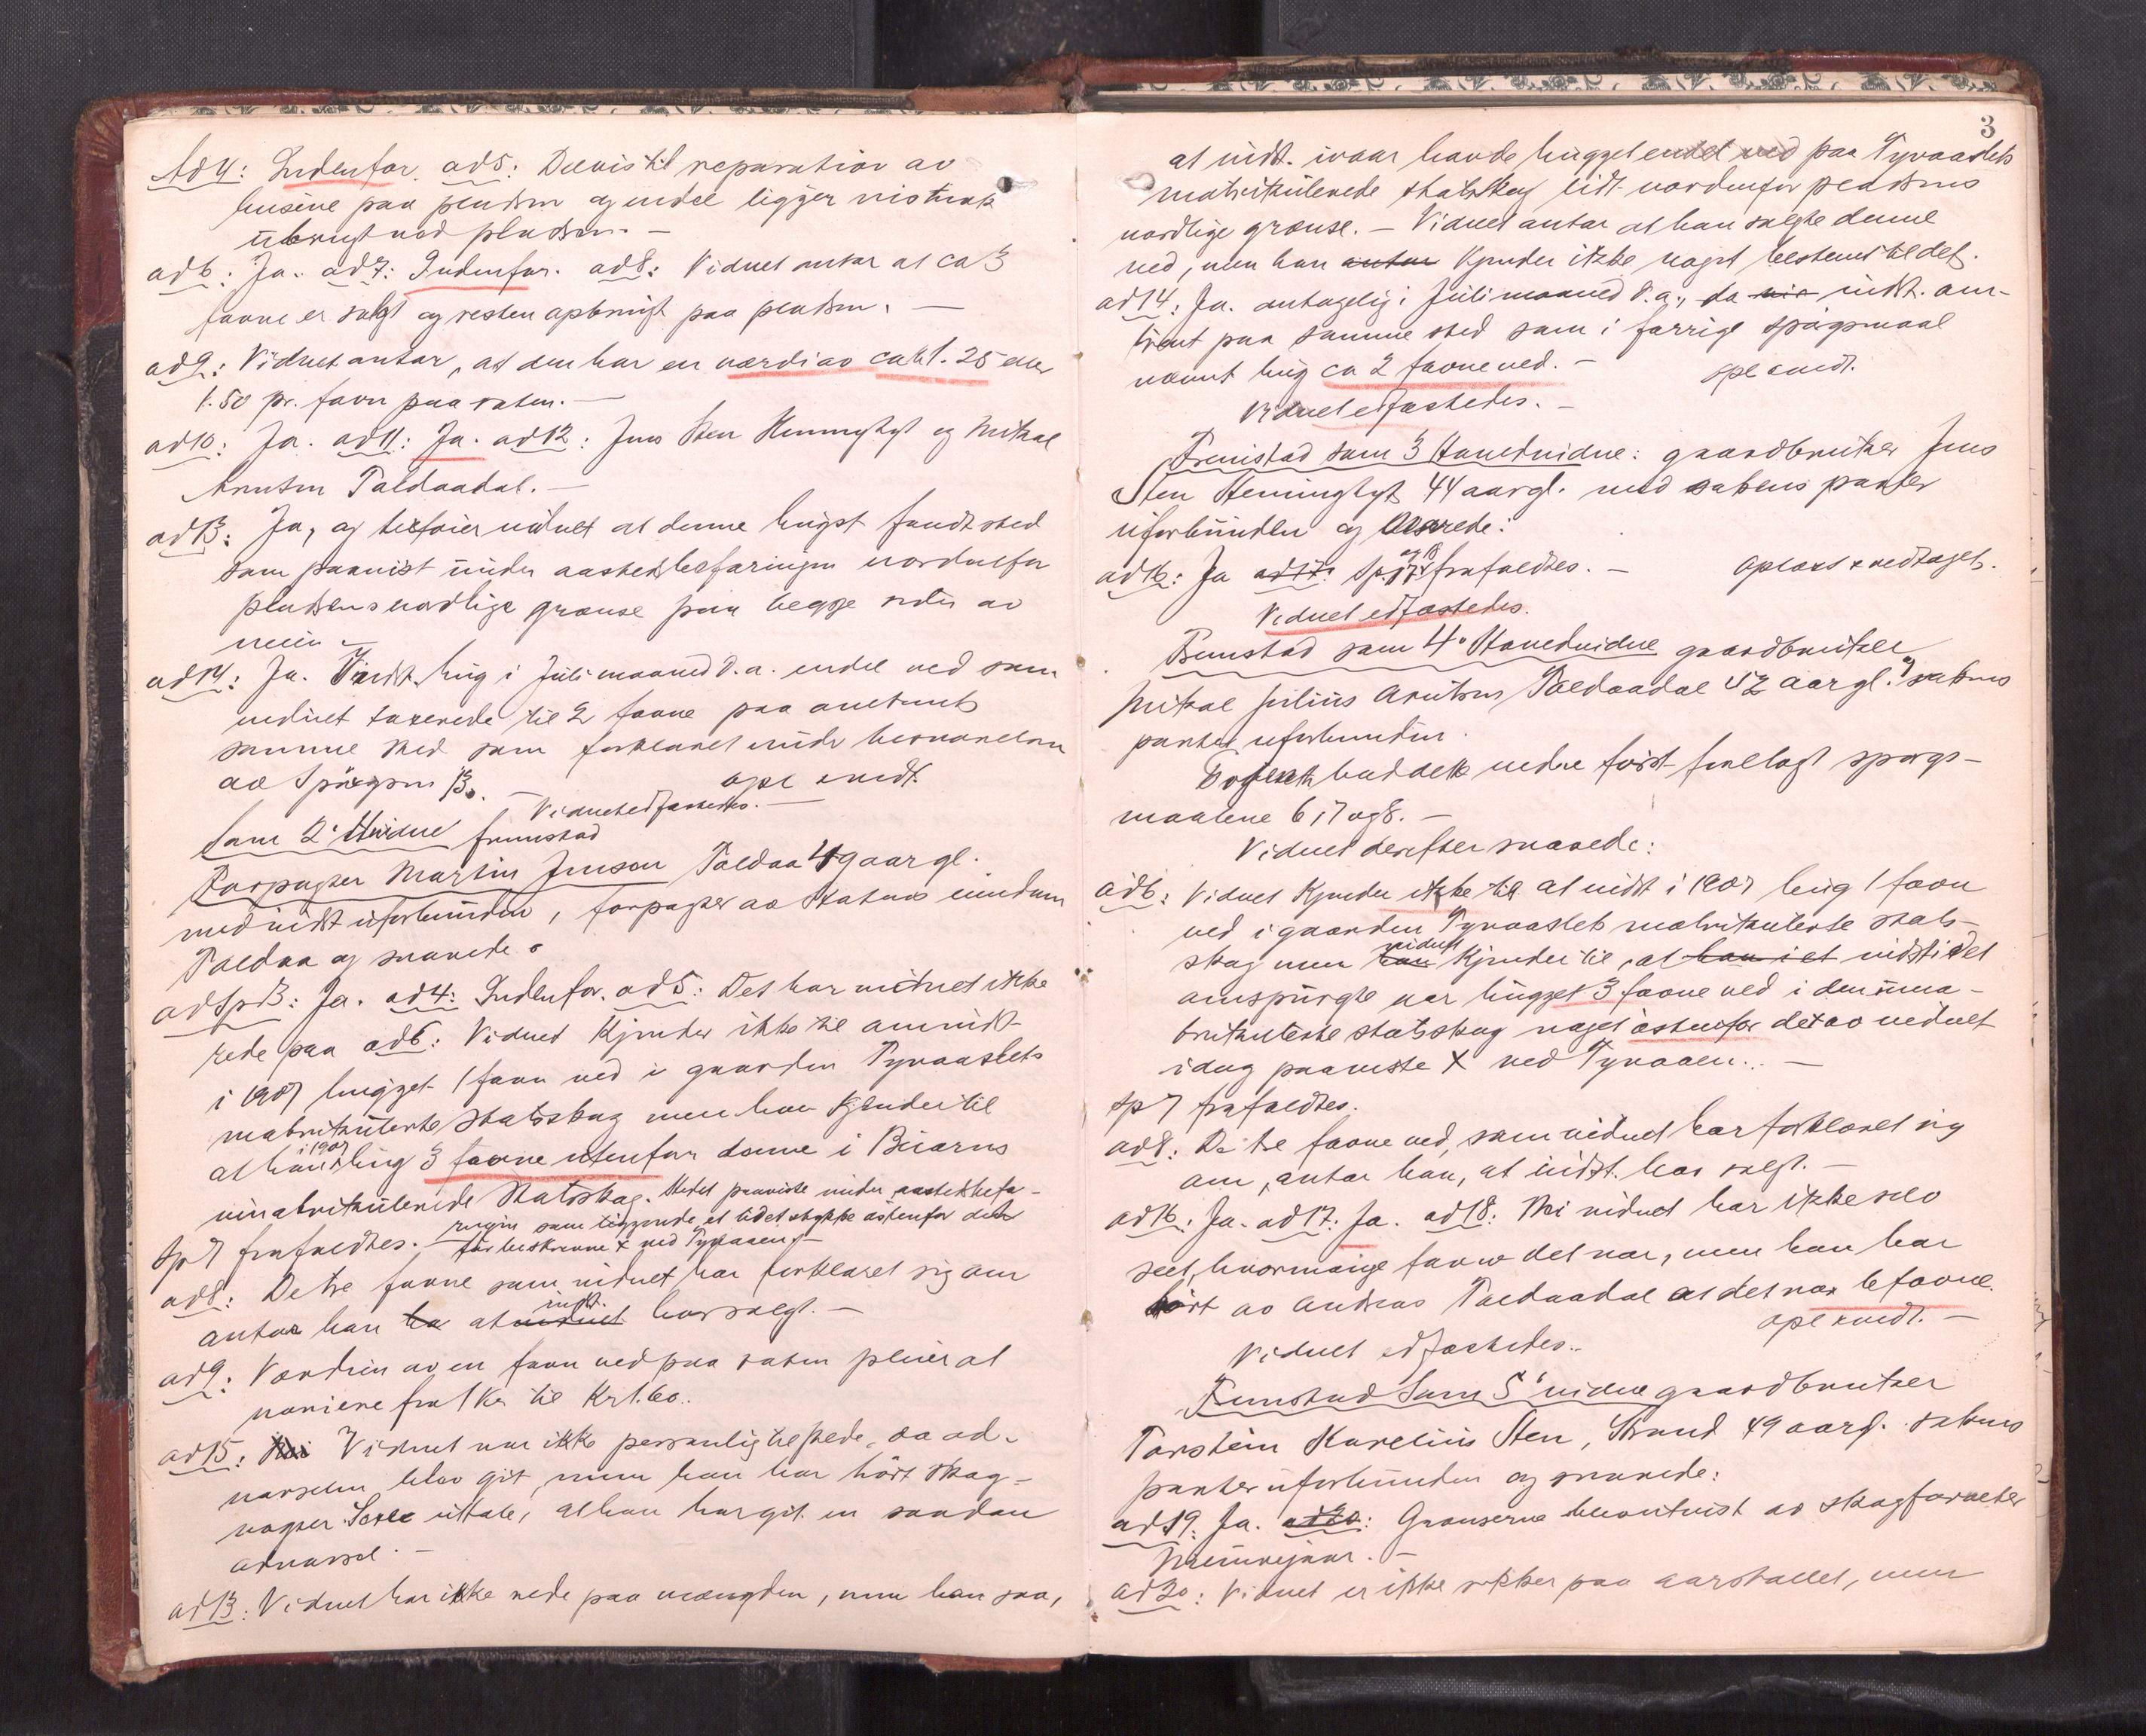 Ad 4: Indenfor. ad 5: Delvis til reparation av
husene paa pladsen og endel ligger
ubrugt ved pladsen. —
ad 6: Ja. ad 7: Indenfor. ad 8: Vidnet antar at ca 3
favne er solgt og resten opbrugt paa pladsen. —
ad 9: Vidnet antar, at den har en værdi av ca kr 1.25 eller
1.50 pr. favn paa roten. —
ad 10: Ja. ad 11: Ja. ad 12: Jens Sten Hemmghyt og Mikal
Arntsen Tældaadal. —
ad 13: Ja, og tilføier vidnet at denne hugst fandt sted
som paavist under aastedsbefaringen nordenfor
pladsens nordlige grænse paa begge sider av
veien —
ad 14: Ja. Indst. hug i Juli maaned d.a. endel ved som
vidnet taxerede til 2 favne paa omtrent
samme sted som forklaret under besvarelsen
av Spørgsm 13. — opl & vedt.
Vidnet edfæstedes. —
Som 2' Hvidne fremstod
Forpagter Martin Jensen Tældaa 49 aar gl.
med indst uforbunden, forpagter av Statens eiendom
Tældaa og svarede:
ad Sp 3: Ja. ad 4: Indenfor. ad 5: Det har vidnet ikke
rede paa ad 6: Vidnet kjender ikke til om indst
i 1907 hugget 1 favn ved i gaarden Tyvaaslets
matrikulerte statsskog men han kjender til
i 1907
at han hug 3 favne utenfor denne i Biarns
umatrikulerede Statsskog. Stedet paaviste under aastedsbefa-
ringen som liggende et lidet stykke østenfor den
Sp 7 frafaldtes. før beskrevne x ved Tyvaaen. —
ad 8: De tre favne som vidnet har forklaret sig om
indst.
antar han ha at vidnet har solgt. —
ad 9: Værdien av en favn ved paa roten pleier at
variere fra 1 kr til Kr 1.60.
ad 15: Nei Vidnet var ikke personlig tilstede, da ad-
varselen blev git, men han har hørt skog-
vogter uttale, at han har git en saadan
advarsel. —
ad 13: Vidnet har ikke rede paa mængden, men han saa,
3
at indst. ivaar havde hugget endel ved paa Tyvaaslets
matrikulerede statsskog lidt nordenfor pladsens
nordlige grænse. — Vidnet antar at han solgte denne
ved, men han antar kjender ikke noget bestemt til det.
ad 14: Ja. antagelig i Juli maaned d.a., da indst. om-
trent paa samme sted som i forrige spørgsmaal
nævnt hug ca 2 favne ved. — opl & vedt.
Vidnet edfæstedes. —
Fremstod som 3' Hovedvidne: gaardbruker Jens
Sten Hemmghyt 44 aar gl. med sakens parter
uforbunden og svarede:
og 18
ad 16: Ja ad 17: Sp. 17 frafaldtes. — Oplæst & vedtaget.
Vidnet edfæstedes.
Fremstod som 4' Hovedvidne gaardbruker
Mikal Julius Arntsen Tældaadal 52 aar gl. sakens
parter uforbunden.
blev vidne først forelagt spørgs-
maalene 6, 7 og 8. —
Vidnet derefter svarede:
ad 6: Vidnet kjender ikke til at indst i 1907 hug 1 favn
ved i gaarden Tyvaaslets matrikulerte stats-
vidnet
skog men han kjender til, at han i et indst i det
omspurgte aar hugget 3 favne ved i den uma-
trikulerte statsskog noget østenfor det av vidnet
idag paaviste x ved Tyvaaen. —
Sp 7 frafaldtes.
ad 8: De tre favne ved, som vidnet har forklaret sig
om, antar han, at indst. har solgt. —
ad 16: Ja. ad 17: Ja. ad 18: Nei vidnet har ikke selv
seet, hvormange favne det var, men han har
hørt av Andreas Tældaadal at det var 6 favne.
opl & vedt. —
Vidnet edfæstedes.
Fremstod som 5' vidne gaardbruker
Torstein Karelius Sten, Strand 49 aar gl. sakens
parter uforbunden og svarede:
ad 19: Ja. ad 20: Grænserne blev utvist av skogforvalter
ad 20: Vidnet er ikke sikker paa aarstallet, men